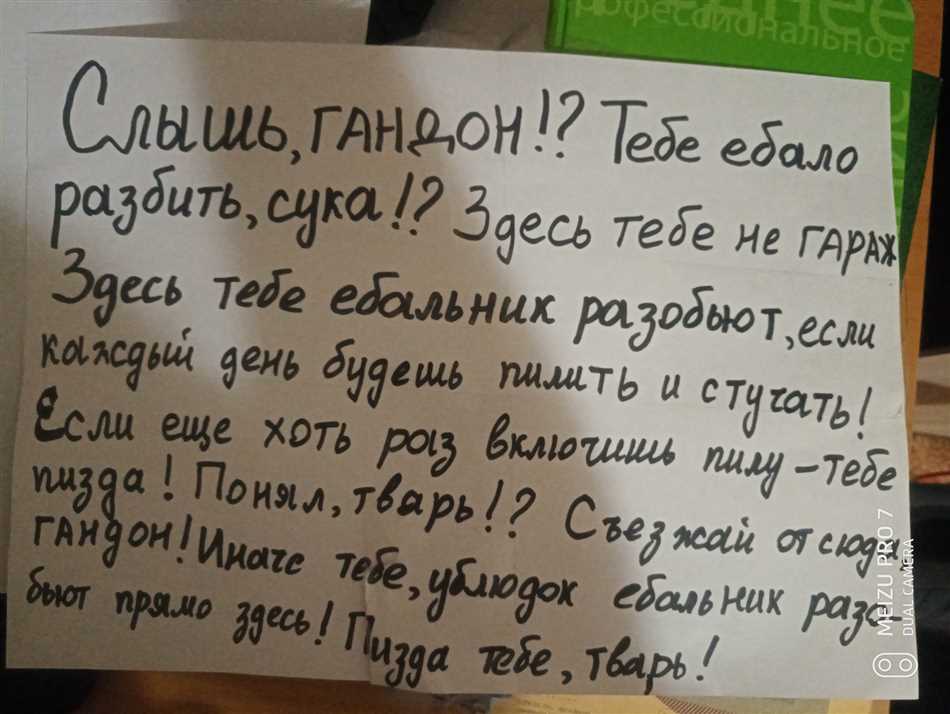 днее
профессиональное
Слышь, ГАНДОН!? Тебе ебало
разбить, сука!? Здесь тебе не ГАРАЖ
Здесь тебе ебальник разобьют, если
каждый день будешь пилить и стучать!
Если еще хоть раз включишь пилу - тебе
пизда! Понял, тварь!? Съезжай отсюда
ГАНДОН! Иначе тебе, ублюдок ебальник разо-
бьют прямо здесь! Пизда тебе, тварь!
MEIZU PRO 7
DUAL CAMERA